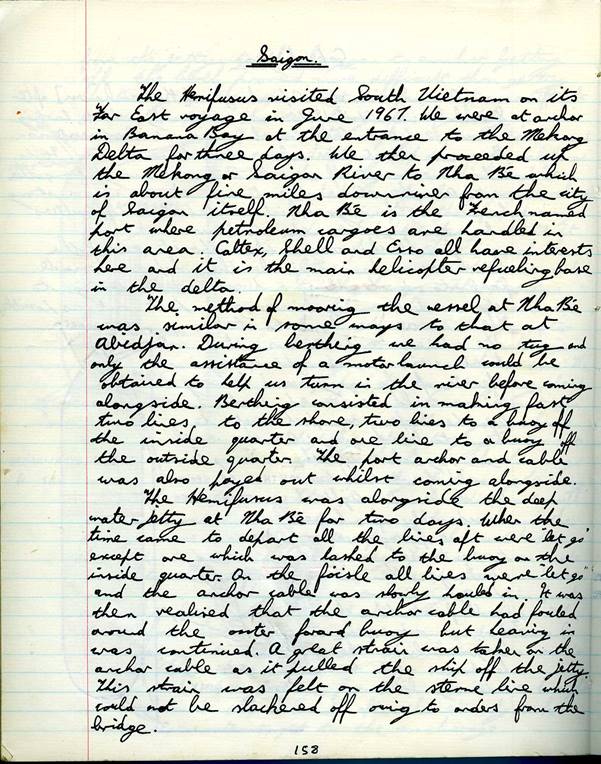 Saigon.
The Hemifusus visited South Vietnam on its
Far East voyage in June 1967. We were at anchor
in Banana Bay at the entrance to the Mekong
Delta for three days. We then proceeded up
the Mekong or Saigon River to Nha Bé which
is about five miles downriver from the city
of Saigon itself. Nha Bé is the French named
port where petroleum cargoes are handled in
this area. Caltex, Shell and Esso all have interests
here and it is the main helicopter refueling base
in the delta.
The method of mooring the vessel at Nha Bé
was similar in some ways to that at
Abidjan. During berthing we had no tug and
only the assistance of a motor launch could be
obtained to help us turn in the river before coming
alongside. Berthing consisted in making fast
two lines, to the shore, two lines to a buoy off
the inside quarter and one line to a buoy off
the outside quarter. The port anchor and cable
was also payed out whilst coming alongside.
The Hemifusus was alongside the deep
water jetty at Nha Bé for two days. When the
time came to depart all the lines aft were "let go"
except one which was lashed to the buoy on the
inside quarter. On the fo'isle all lines were "let go"
and the anchor cable was slowly hauled in. It was
then realised that the anchor cable had fouled
around the outer foward buoy but heaving in
was continued. A great strain was taken on the
anchor cable as it pulled the ship off the jetty.
This strain was felt on the sterne line which
could not be slackened off owing to orders from the
bridge.
158